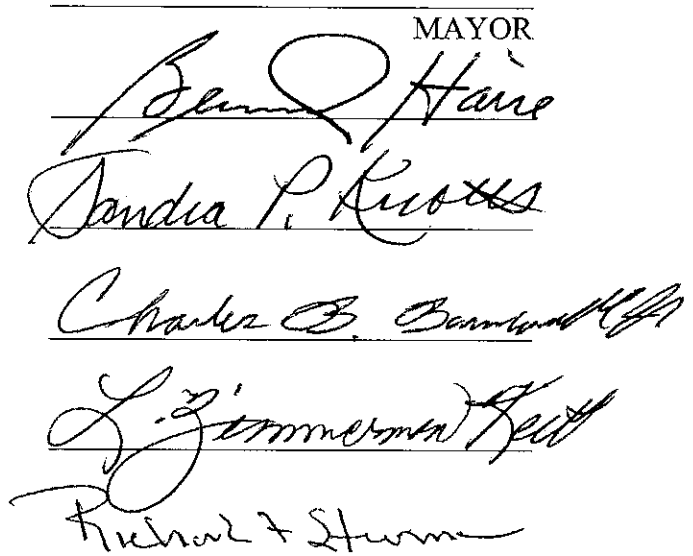 MAYOR
Bernard Haire
Sandra P. Knotts
Charles B. Barnwell Jr
L. Zimmerman Keitt
Richard F Sturm